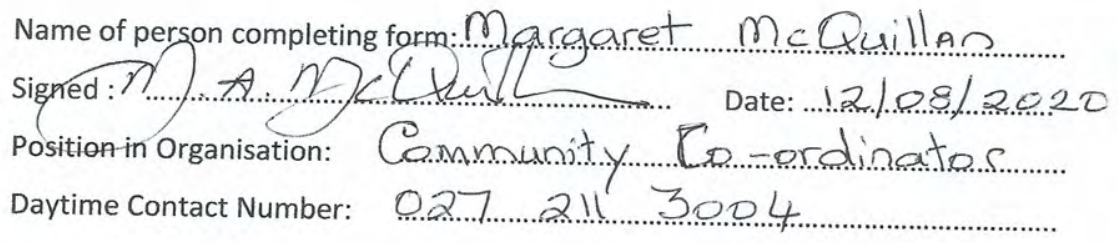 Name of person completing form: Margaret McQuillan
Signed : M. A. McQuill Date: 12/08/2020
Position in Organisation: Community Co-ordinator
Daytime Contact Number: 027 211 3004